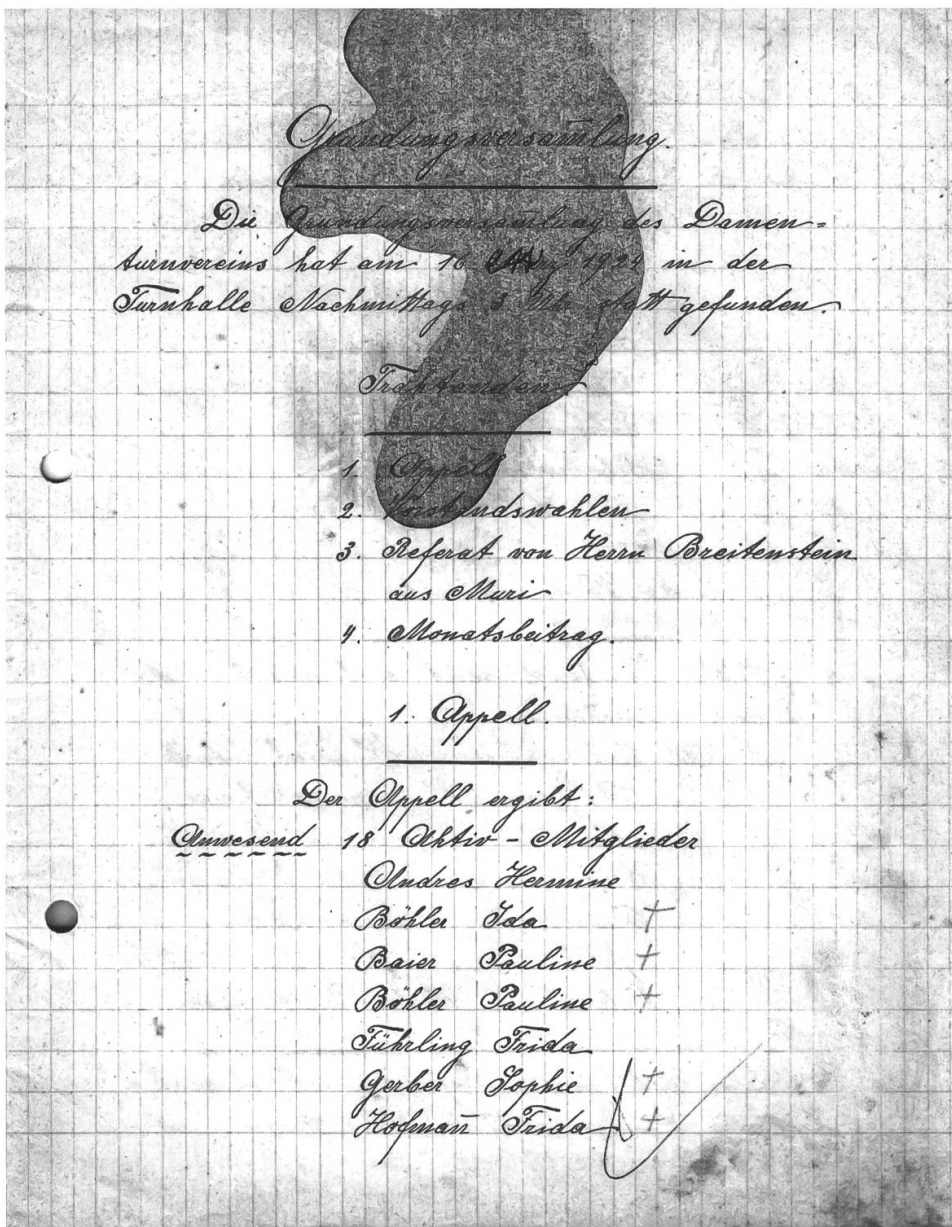 Gründungsversam̄lung.
Die Gründungsversam̄lung des Damen=
turnvereins hat am 16 März 1924 in der
Turnhalle Nachmittags 3 Uhr statt gefunden.
Traktanden
1. Appell
2. Vorstandswahlen
3. Referat von Herrn Breitenstein
aus Muri
4. Monatsbeitrag.
1. Appell.
Der Appell ergibt:
Anwesend 18 Aktiv - Mitglieder
Andres Hermine
Böhler Ida +
Baier Pauline +
Böhler Pauline +
Führling Frida
Gerber Sophie +
Hofman̄ Frida +